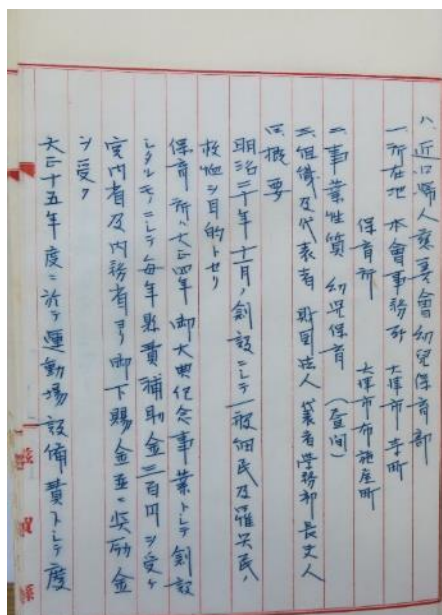 八、近江婦人慈善會幼兒保育部
一、所在地 本會事務所 大津市
保育所 大津市布施屋町
二、事業性質 幼兒保育(昼間)
三、組織及代表者 財団法人 代表者學務部長夫人
四、概要
明治二十年十一月ノ創設ニシテ一般細民及罹災民ノ
救恤ヲ目的トセリ
保育所ハ大正四年御大典紀念事業トシテ創設
シタルモノニシテ毎年縣費補助金三百円ヲ受ケ
宮内省及内務省ヨリ御下賜金並ニ奨励金
ヲ受ク
大正十五年度ニ於テ運動場設備費トシテ慶
滋賀縣